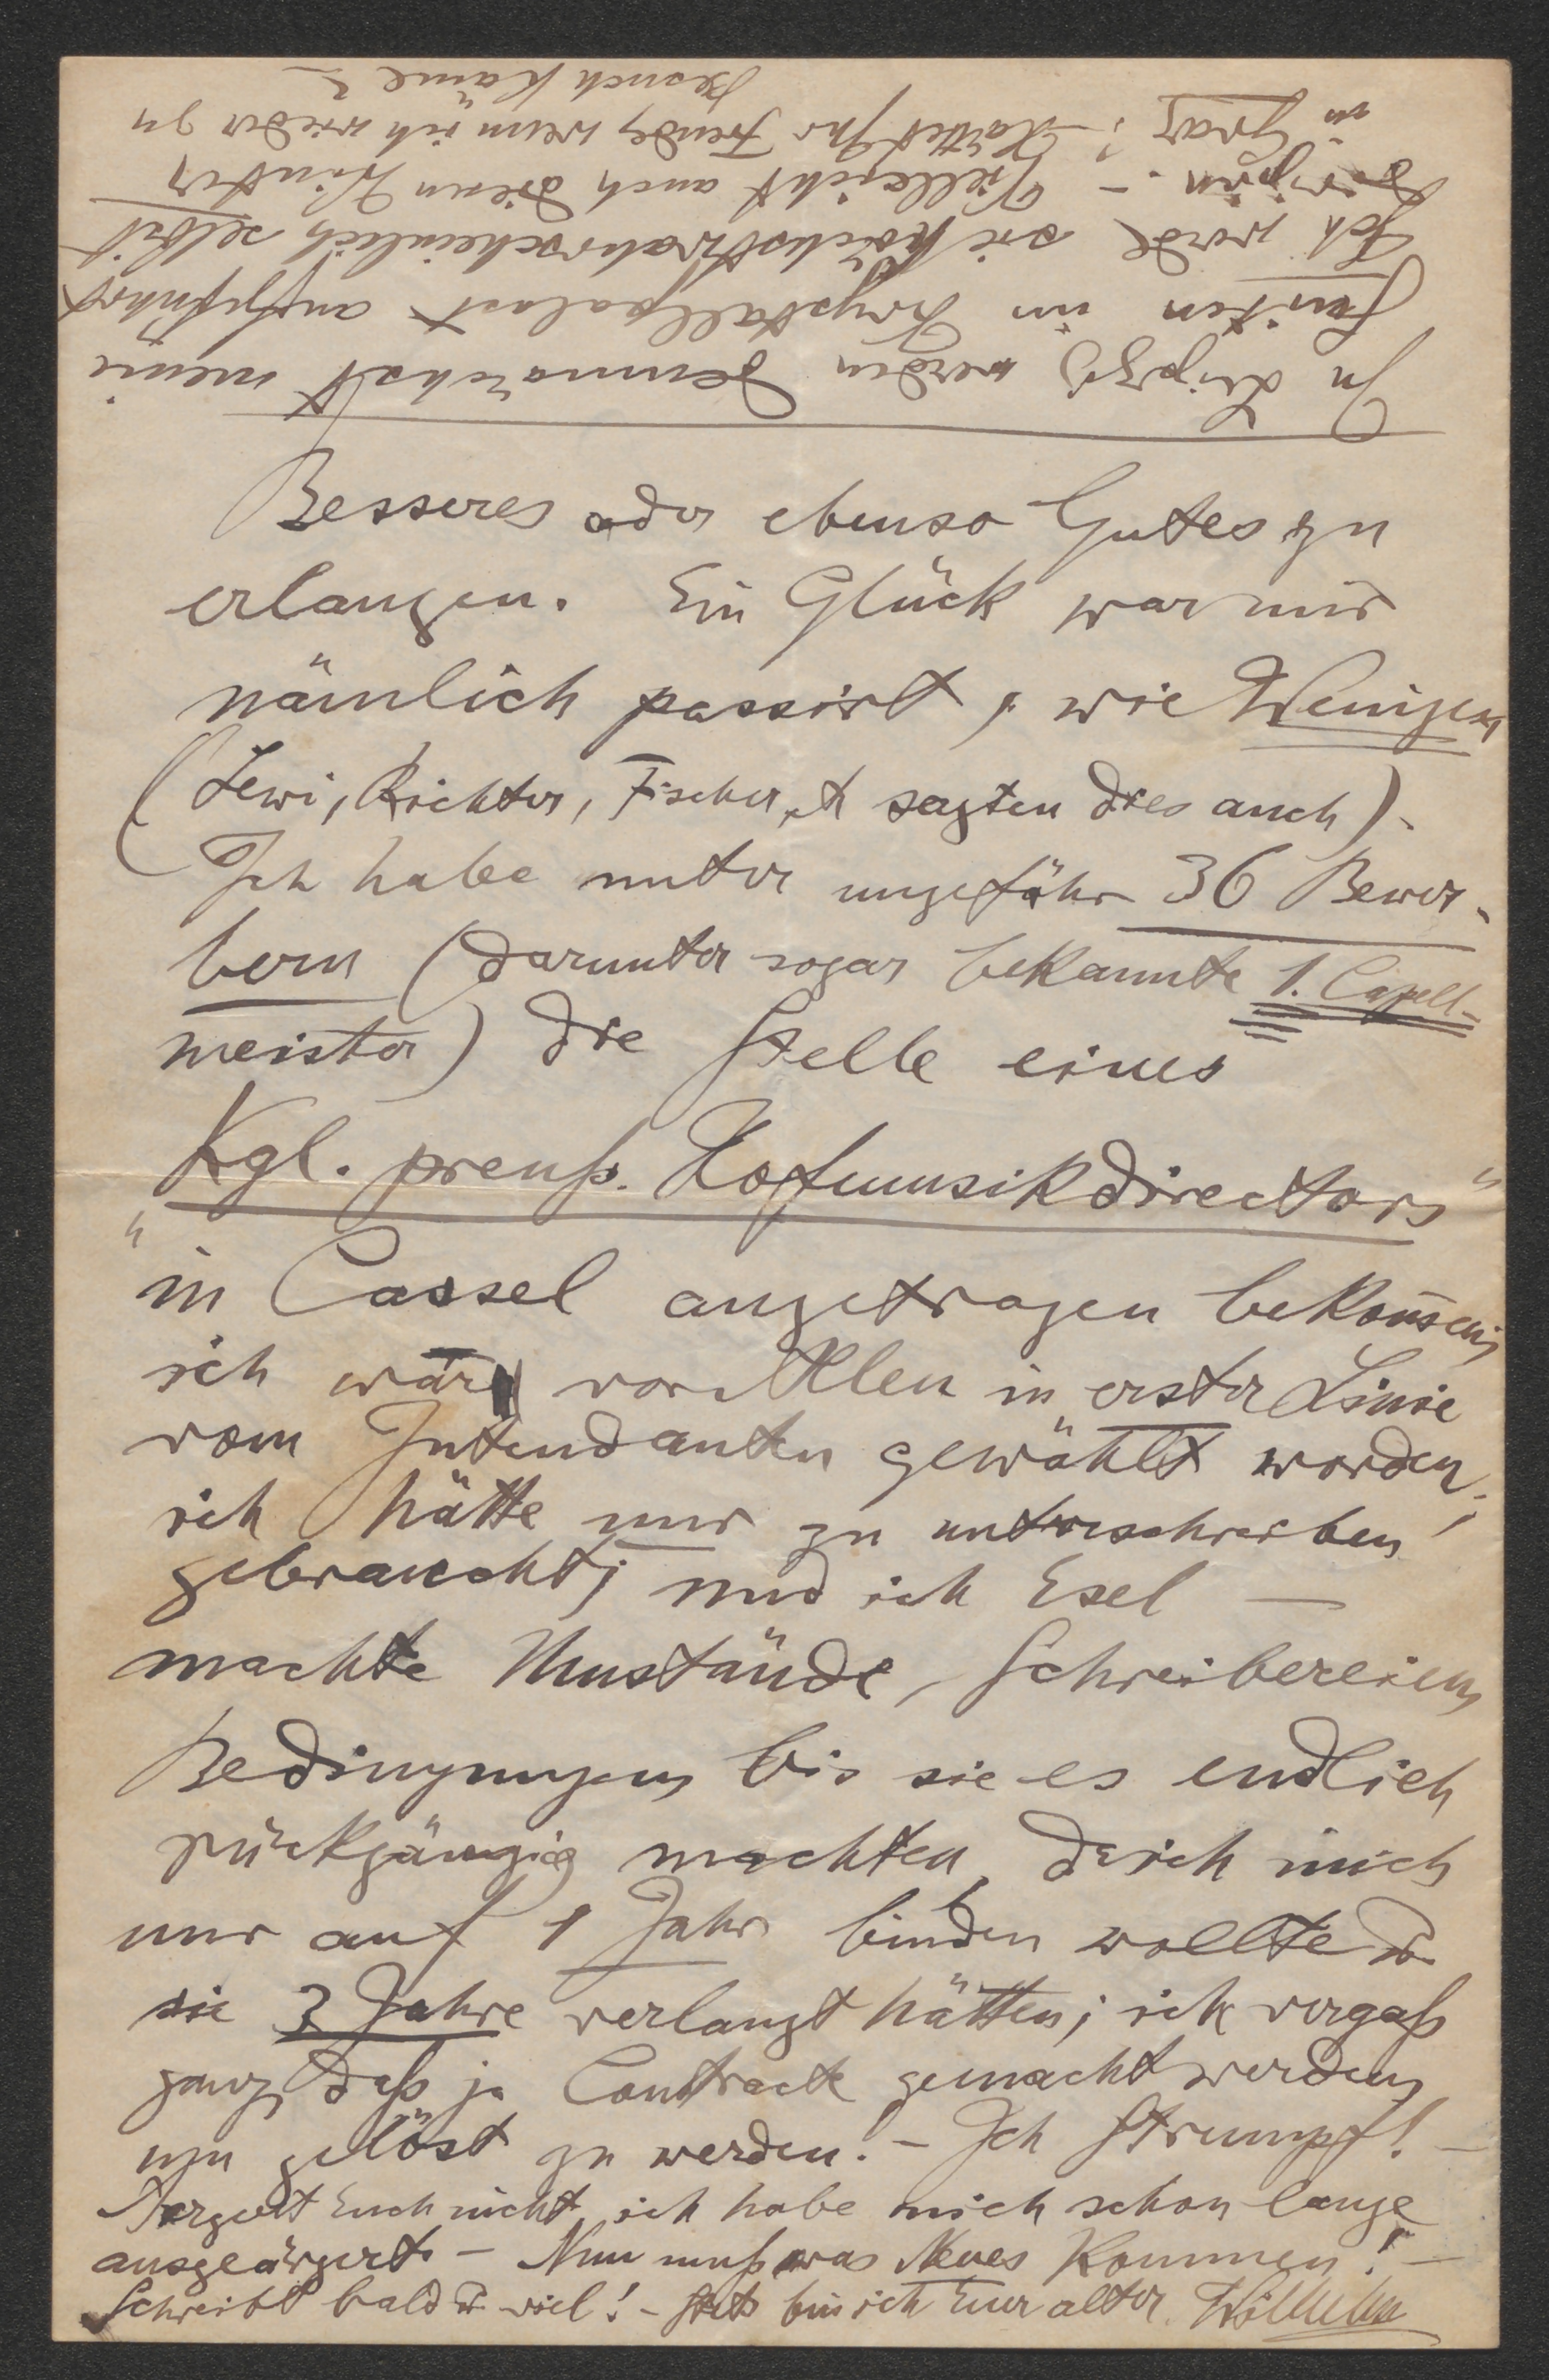 Besseres oder ebenso Gutes zu
erlangen. Ein Glück war mir
nämlich passirt, wie Wenigen
(Lewi, Richter, Fischer, sagten dies auch).
Ich habe unter ungefähr 36 Bewer-
bern (darunter sogar bekannte 1. Capell-
meister) die Stelle eines
"Kgl. preuß. Hofmusikdirectors"
in Cassel angetragen bekom̄en;
ich wäre vor Allen in erster Linie
vom Intendanten gewählt worden;
ich hätte nur zu unterschreiben
gebraucht; und ich Esel —
machte Umstände, Schreibereien,
Bedingungen bis sie es endlich
rückgängig machten, da ich mich
nur auf 1 Jahr binden wollte u
sie 3 Jahre verlangt hätten; ich vergaß
ganz, daß ja Contracte gemacht werden,
um gelöst zu werden! - Ich Strumpf! —
Aergert Euch nicht, ich habe mich schon lange
ausgeärgert. - Nun muß was Neues kommen! —
Schreibt bald u viel! - Stets bin ich Euer alter Wilhelm
In Leipzig werden demnächst meine
Suiten im Krystallpalast aufgeführt
Ich werde sie höchstwahrscheinlich selbst
dirigiren. - Vielleicht auch diesen Winter
in Graz? - Hättet Ihr Freude, wenn ich wieder zu
Besuch käme? —